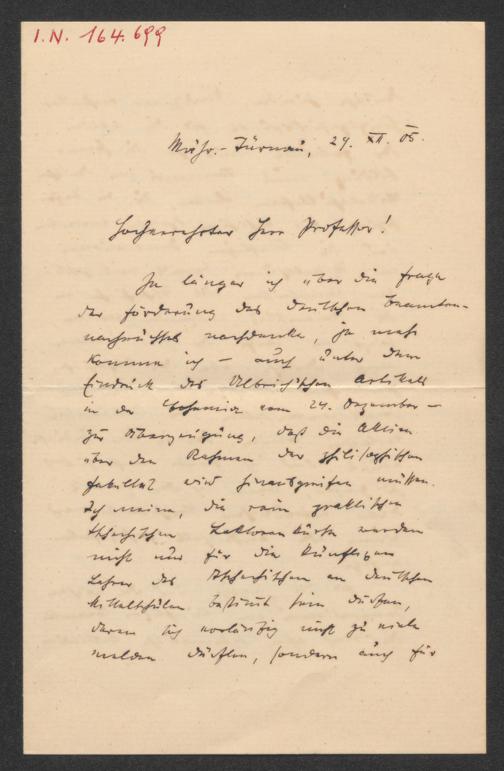 I.N. 164.699
Mähr.-Türnau, 29. XII. 05.
Hochverehrter Herr Professor!
Je länger ich über die Frage
der Förderung des deutschen Beamten-
nachwuchses nachdenke, je mehr
komme ich – auch unter dem
Eindruck des Ulbrich'schen Artikels
in der Bohemia vom 24. Dezember –
zur Überzeugung, daß die Aktion
über den Rahmen der philosophischen
Fakultät wird hinausgreifen müssen.
Ich meine, die rein praktischen
tschechischen Lektorenkurse werden
nicht nur für die künftigen
Lehrer des Tschechischen an deutschen
Mittelschulen bestimmt sein dürfen,
deren sich vorläufig nicht zu viele
melden dürften, sondern auch für